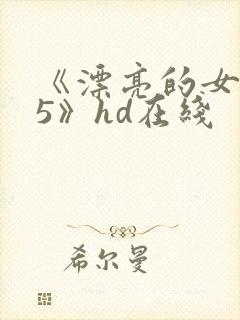 《漂亮的女
5》hd在线
希尔曼